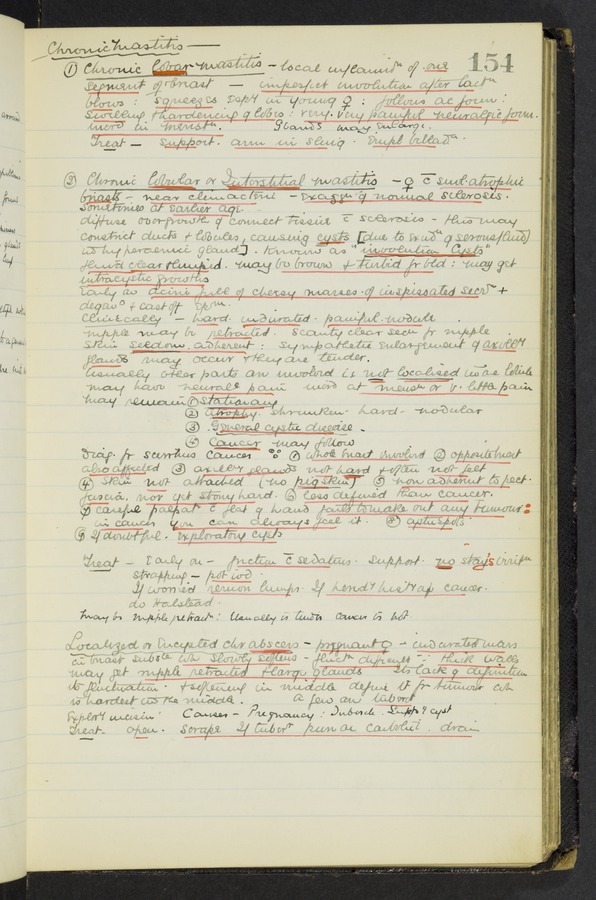 154
Chronic Mastitis —
① Chronic lobar mastitis – local inflammⁿ of one
segment of breast — imperfect involution after lactⁿ
blows : squeezes esply in young ♀ : follows ac form.
Swelling & hardening of lobes : very, very painful neuralgic form.
more in menstⁿ. Glands may enlarge.
Treat — Support. arm in sling. Empl belladⁿ.
② Chronic lobular or Interstitial mastitis – ♀ c̄ senl. atrophic
breasts – near climacteric – exaggⁿ of normal sclerosis.
Sometimes at earlier age.
diffuse overgrowth of connect tissue c̄ sclerosis – this may
constrict ducts & lobules, causing cysts [due to exudⁿ of serous fluid
into hyperaemic gland]. Known as "involution Cysts"
fluid clear & limpid. may be brown & turbid fr bld : may get
intracystic growths
Early on acini full of cheesy masses of inspissated secrⁿ +
& cast off epm.
Clinically – hard indurated painful nodule.
nipple may be retracted. Scanty clear secrⁿ fr nipple
Skin seldom adherent : sympathetic enlargement of axillʸ
glands may occur & they are tender.
Usually other parts are involved is not localised in one lobule
may have neuralg pain more at menstn or v. little pain
may remain ① Stationary
② atrophy shrunken hard nodular
③ General cystic disease –
④ Cancer may follow
Diag. fr scirrhus cancer ① whole breast involved ② opposite breast
also affected ③ axillʸ glands not hard & often not felt
④ Skin not attached (no pig skin) ⑤ non adherent to pect.
fascia, nor yet stony hard. ⑥ less defined than cancer.
⑦ careful palpatⁿ c̄ flat of hand fails to make out any tumour :
in cancer you can always feel it. ⑧ cystic spots
⑨ If doubtful. Exploratory cysts
Treat – Early on – friction c̄ sedatives. Support. no stays
strapping – pot iod
If worried remove lumps. If heredʸ histʸ of cancer.
do Halstead.
may be nipple retractⁿ : Usually is tender cancer is not.
Localized or Encysted chr abscess – pregnant ♀ – indurated mass
in breast substce wh slowly softens – thick walls
may get nipple retracted & large glands lack of definition
& softening in middle define it fr tumour wh
is hardest in the middle. a few are tubercˡ
Causes – Pregnancy :
Treat – open. Scrape If tubercˡ pure ac carbolic. drain